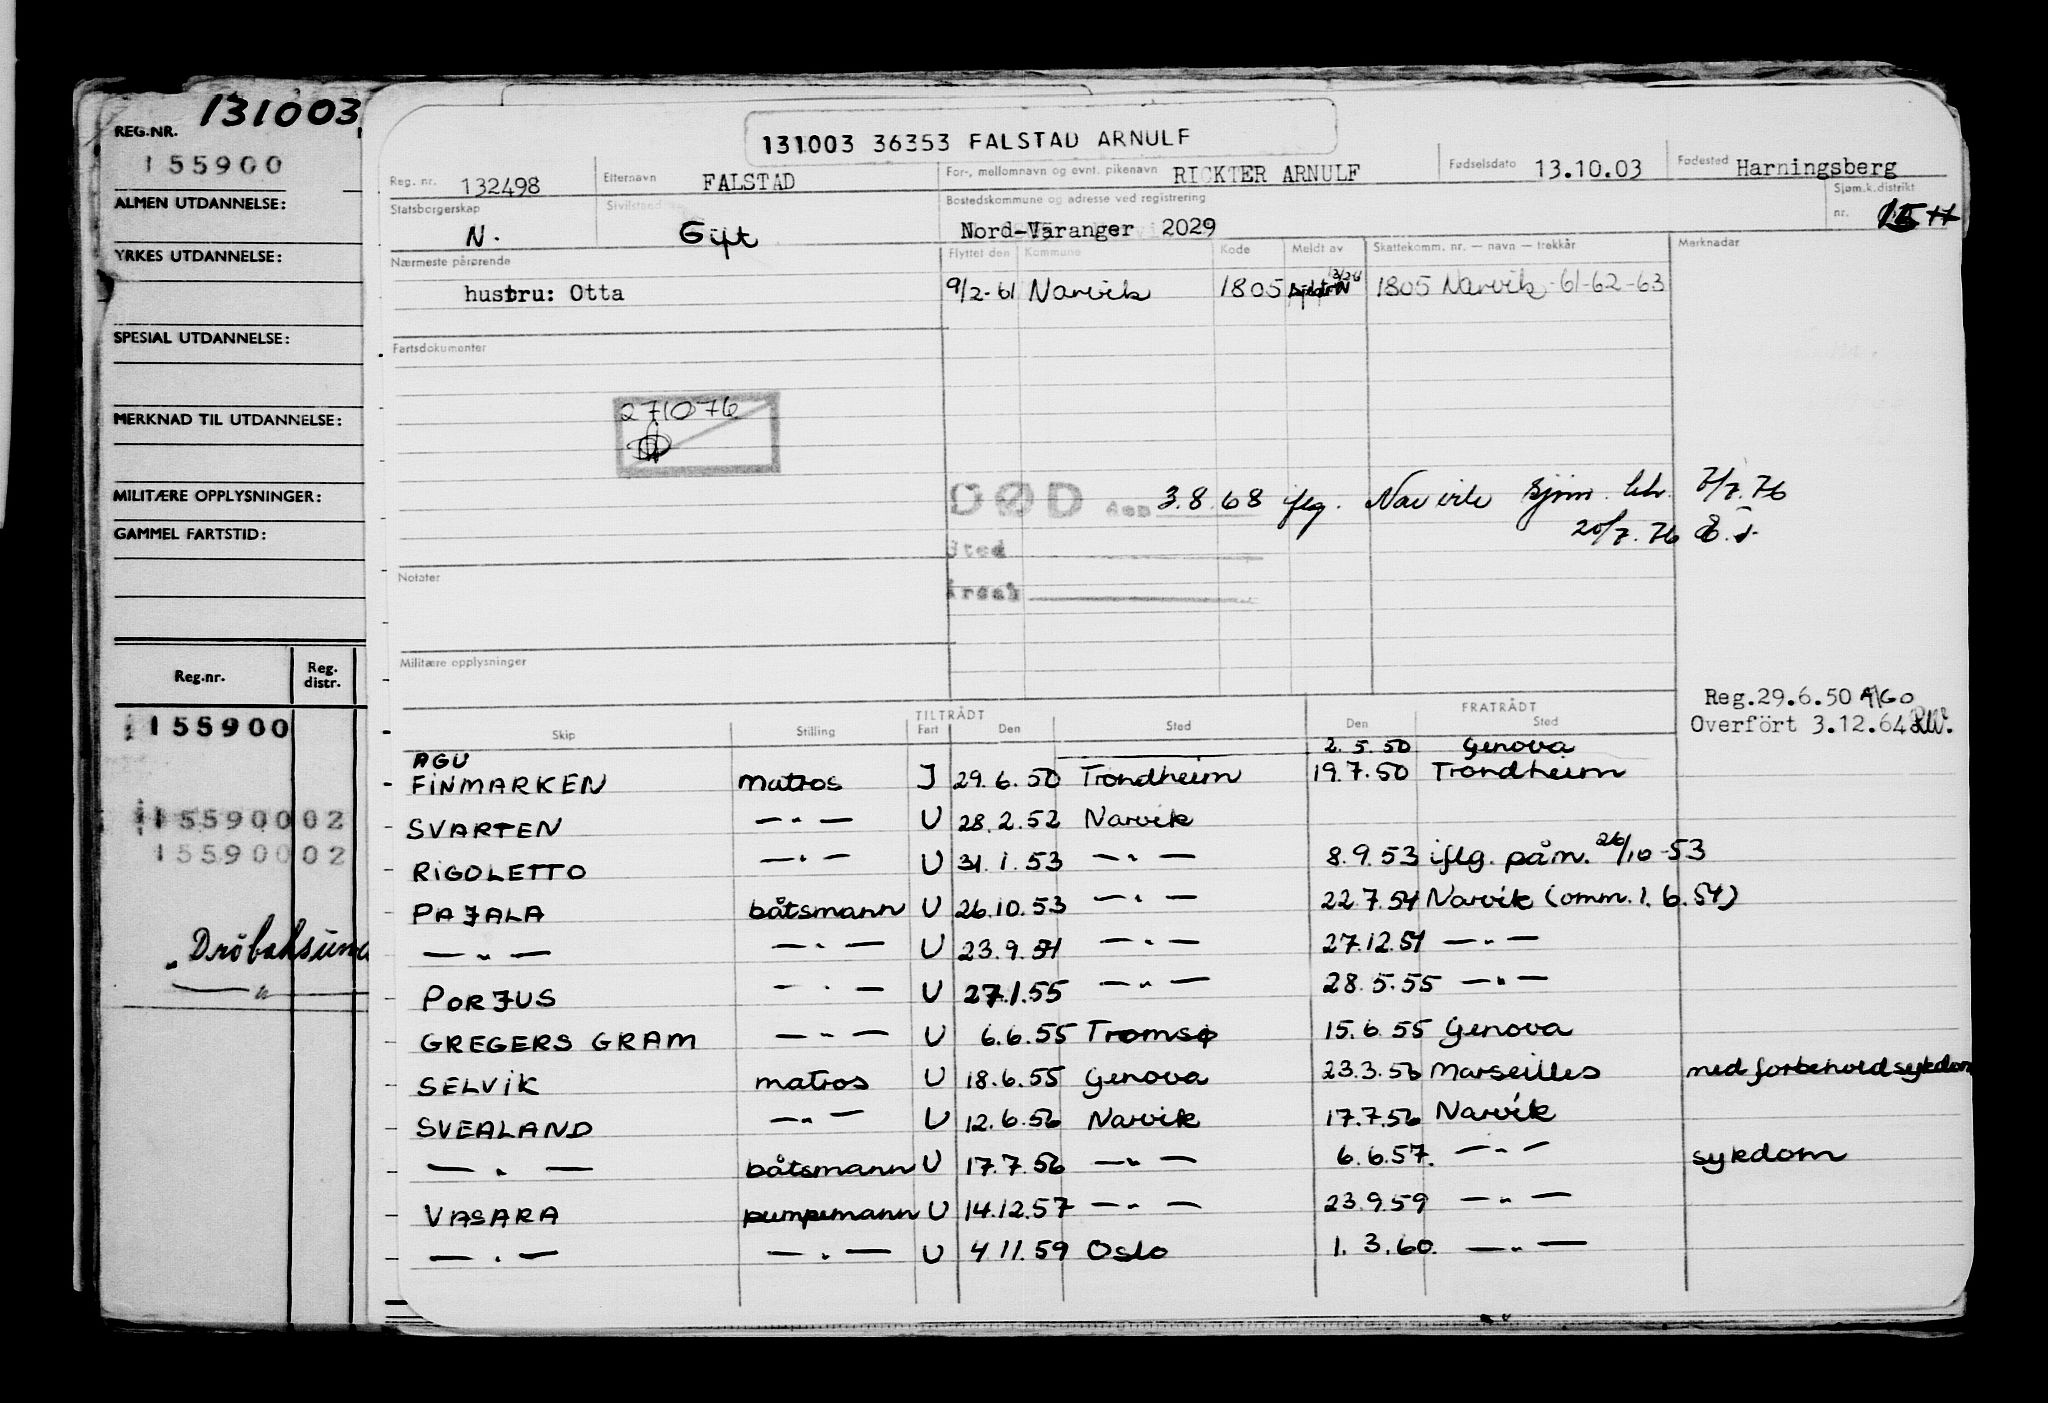 REG.NR. 131003
155900
ALMEN UTDANNELSE:
YRKES UTDANNELSE:
SPESIAL UTDANNELSE:
MERKNAD TIL UTDANNELSE:
MILITÆRE OPPLYSNINGER:
GAMMEL FARTSTID:
Reg.nr. Reg. distr.
155900
15590002
15590002
131003 36353 FALSTAD ARNULF
Reg. nr. 132498 Etternavn FALSTAD For-, mellomnavn og evnt. pikenavn RICKTER ARNULF Fødselsdato 13.10.03 Fødested Harningsberg
Statsborgerskap N. Sivilstand Gift Bostedskommune og adresse ved registrering Nord-Varanger 2029 Sjøm.k.distrikt nr.
Nærmeste pårørende Flyttet den Kommune Kode Meldt av Skattekomm. nr. — navn — trekkår Merknader
hustru: Otta 9/2-61 Narvik 1805 1805 Narvik-61-62-63
Fartsdokumenter
271076
DØD den 3.8.68 iflg. Narvik sjøm. 7/7.76
20/7.76
Sted
Årsak
Notater
Militære opplysninger
Reg.29.6.50
Overført 3.12.64 RW.
TILTRÅDT FRATRÅDT
Skip Stilling Fart Den Sted Den Sted
AGU 2.5.50 Genova
FINMARKEN matros I 29.6.50 Trondheim 19.7.50 Trondheim
SVARTEN — " — U 28.2.52 Narvik
RIGOLETTO — " — U 31.1.53 — " — 8.9.53 iflg. påm. 26/10-53
PAJALA båtsmann U 26.10.53 — " — 22.7.54 Narvik (omm. 1.6.54)
— " — — " — U 23.9.54 — " — 27.12.54 — " —
PORJUS — " — U 27.1.55 — " — 28.5.55 — " —
GREGERS GRAM — " — U 6.6.55 Tromsø 15.6.55 Genova
SELVIK matros U 18.6.55 Genova 23.3.56 Marseilles med forbehold sykdom
SVEALAND — " — U 12.6.56 Narvik 17.7.56 Narvik
— " — båtsmann U 17.7.56 — " — 6.6.57. — " — sykdom
VASARA pumpemann U 14.12.57 — " — 23.9.59 — " —
— " — — " — U 4.11.59 Oslo 1.3.60. — " —